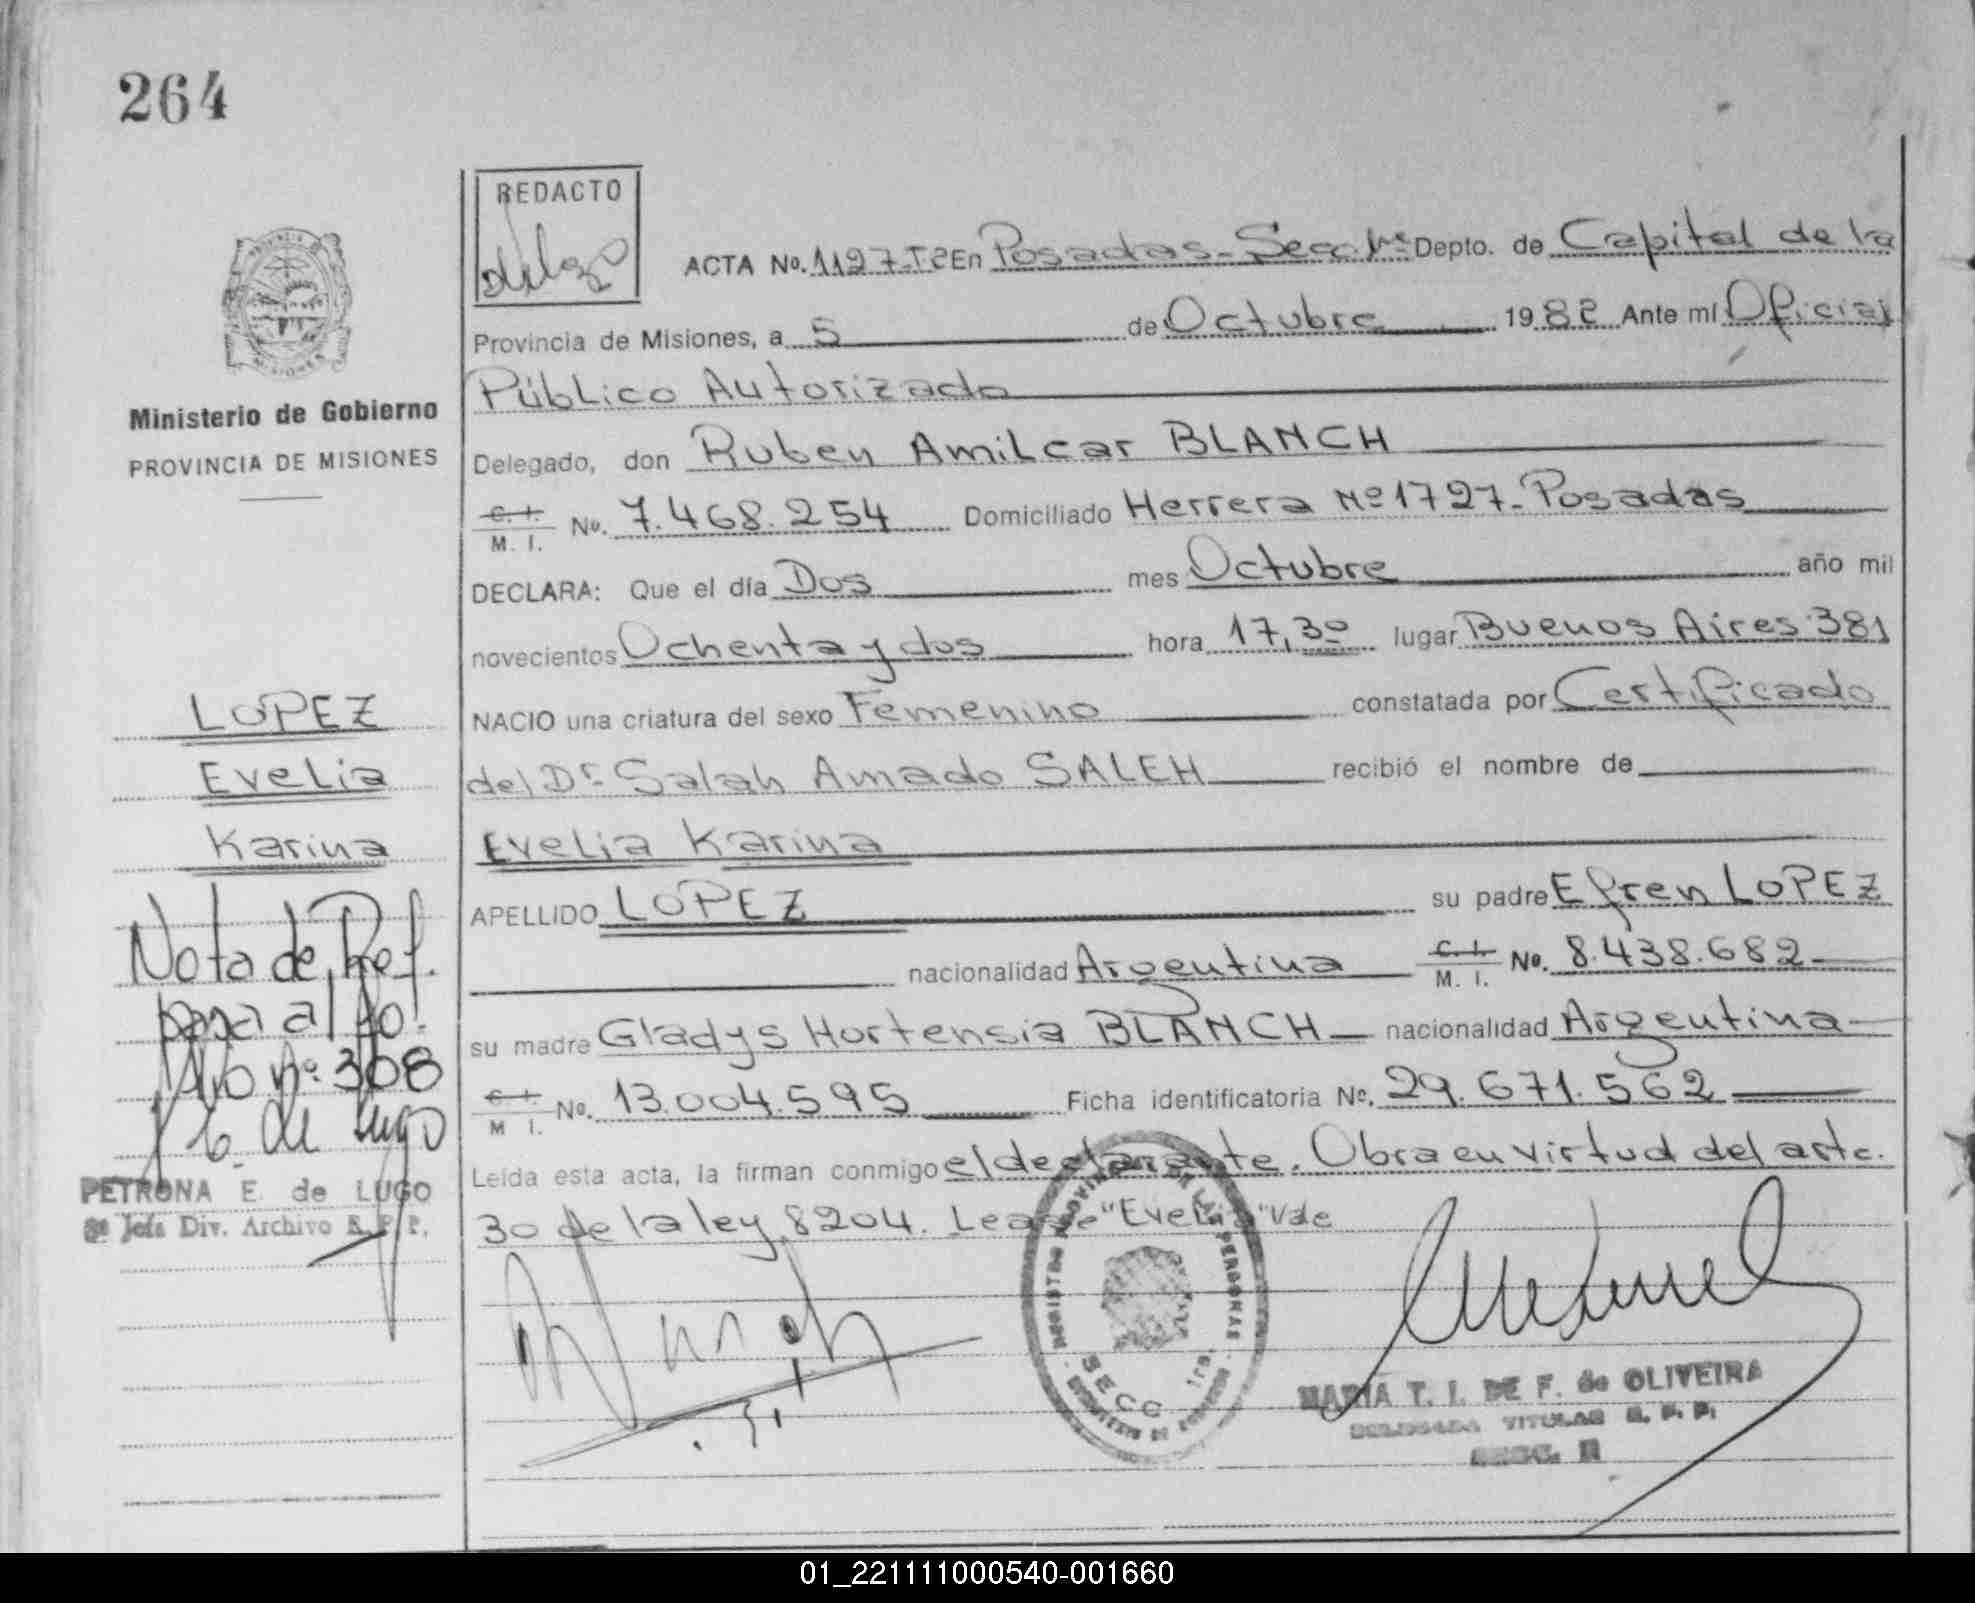 264
REDACTO
ACTA No. 1127-T2 En Posadas-Secc.1ra Depto. de Capital de la
Provincia de Misiones, a 5 de Octubre 1982 Ante mí Oficial
Público Autorizado
Delegado, don Ruben Amilcar BLANCH
C. I.
M. I. No. 7.468.254 Domiciliado Herrera Nº 1727-Posadas
DECLARA: Que el día Dos mes Octubre año mil
novecientos Ochenta y dos hora 17,30 lugar Buenos Aires 381
NACIO una criatura del sexo Femenino constatada por Certificado
del Dr Salah Amado SALEH recibió el nombre de
Evelia Karina
APELLIDO LOPEZ su padre Efren LOPEZ
nacionalidad Argentina C. I.
M. I. No. 8.438.682
su madre Gladys Hortensia BLANCH nacionalidad Argentina
C. I.
M I. No. 13.004.595 Ficha identificatoria No. 29.671.562
Leída esta acta, la firman conmigo el declarante. Obra en virtud del artc.
30 de la ley 8204. Lease "Evelia" Vale
PROVINCIA DE
MISIONES
Ministerio de Gobierno
PROVINCIA DE MISIONES
LOPEZ
Evelia
Karina
Nota de Ref.
pasa al fo.
Nº 308
de Lugo
PETRONA E. de LUGO
Jefa Div. Archivo R. P. P.
REGISTRO PROVINCIAL DE LAS PERSONAS
SECC 1ra.
MARIA T. I. DE F. de OLIVEIRA
DELEGADA TITULAR R. P. P.
SECC. II
01_221111000540-001660